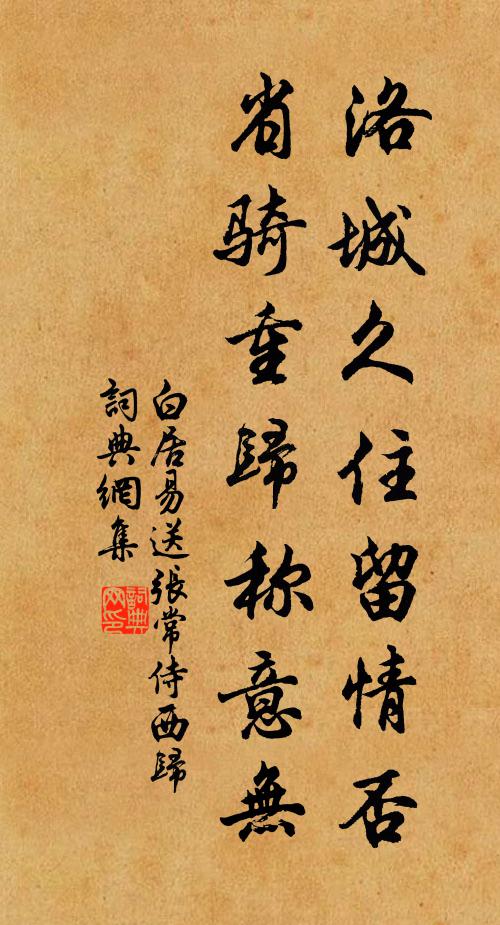 洛城久住留情否
省骑重歸称意無
白居易送張常侍西歸
詞典網集
詞典网印